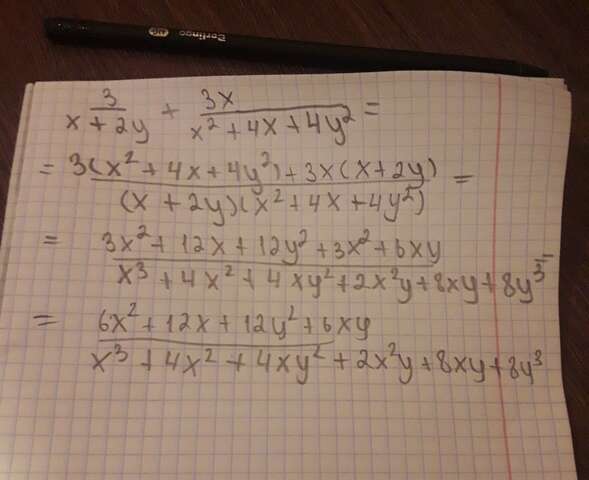 Berlingo
3/(x + 2y) + 3x/(x² + 4x + 4y²) =
= (3(x² + 4x + 4y²) + 3x(x + 2y))/((x + 2y)(x² + 4x + 4y²)) =
= (3x² + 12x + 12y² + 3x² + 6xy)/(x³ + 4x² + 4xy² + 2x²y + 8xy + 8y³) =
= (6x² + 12x + 12y² + 6xy)/(x³ + 4x² + 4xy² + 2x²y + 8xy + 8y³)